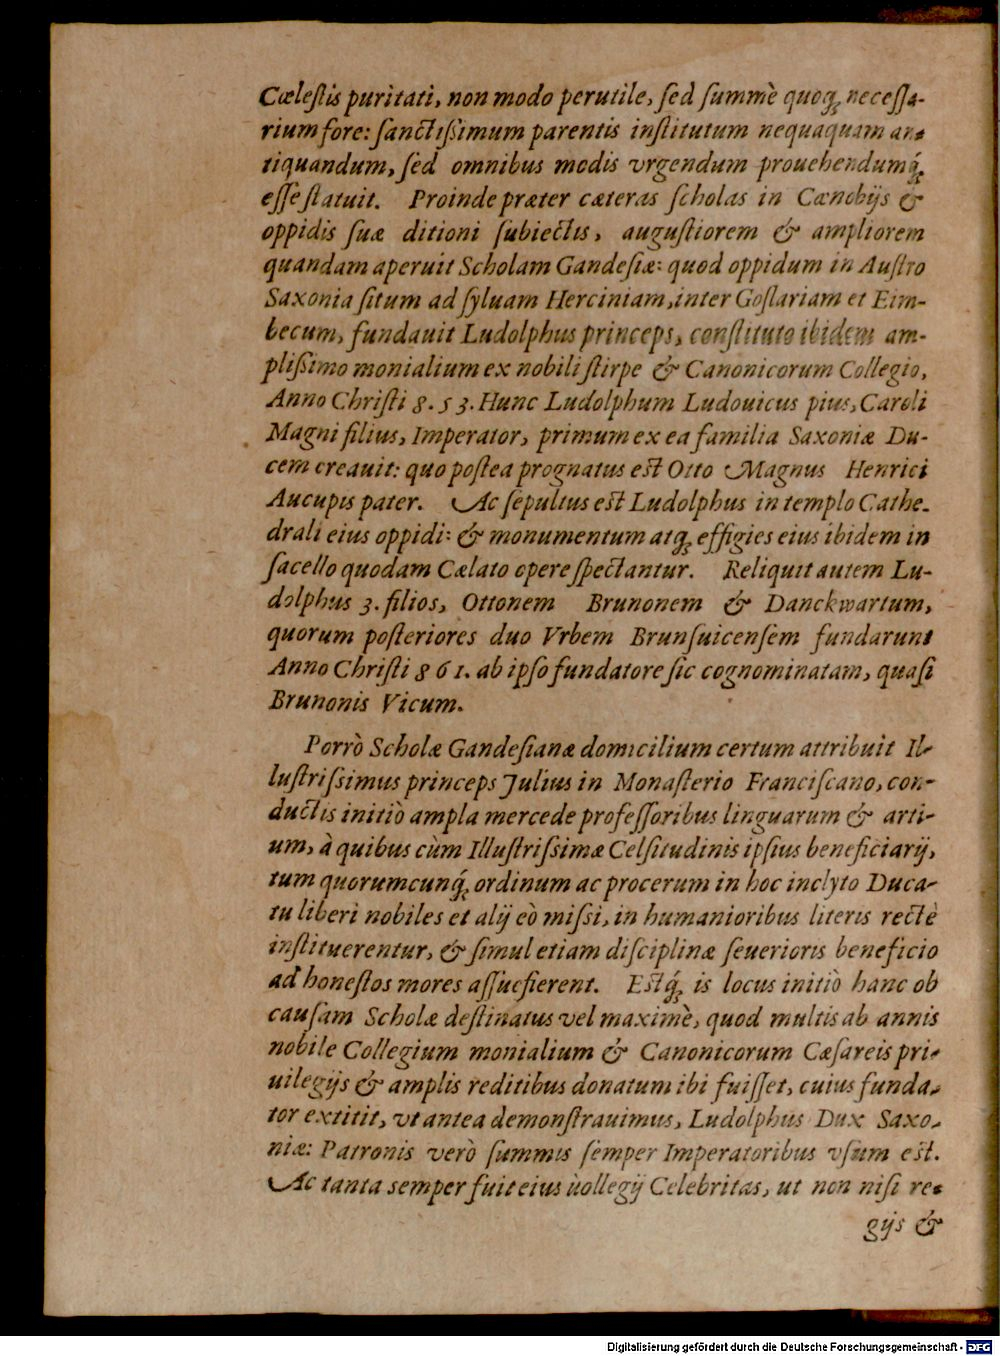 Cœleſtis puritati, non modo perutile, ſed ſummè quoq́; neceſſa-
rium fore: ſanctiſsimum parentis inſtitutum nequaquam an-
tiquandum, ſed omnibus modis vrgendum prouehendumq́;
eſſe ſtatuit. Proinde præter cæteras ſcholas in Cœnobijs &
oppidis ſuæ ditioni ſubiectis, auguſtiorem & ampliorem
quandam aperuit Scholam Gandeſiæ: quod oppidum in Auſtro
Saxonia ſitum ad ſyluam Herciniam, inter Goſlariam et Eim-
becum, fundauit Ludolphus princeps, conſtituto ibidem am-
pliſsimo monialium ex nobili ſtirpe & Canonicorum Collegio,
Anno Chriſti 8.53. Hunc Ludolphum Ludouicus pius, Caroli
Magni filius, Imperator, primum ex ea familia Saxoniæ Du-
cem creauit: quo poſtea prognatus eſt Otto Magnus Henrici
Aucupis pater. Ac ſepultus eſt Ludolphus in templo Cathe-
drali eius oppidi: & monumentum atq́; effigies eius ibidem in
ſacello quodam Cælato opere ſpectantur. Reliquit autem Lu-
dolphus 3. filios, Ottonem Brunonem & Danckwartum,
quorum poſteriores duo Vrbem Brunſuicenſem fundarunt
Anno Chriſti 861. ab ipſo fundatore ſic cognominatam, quaſi
Brunonis Vicum.
Porrò Scholæ Gandeſianæ domicilium certum attribuit Il-
luſtriſsimus princeps Julius in Monaſterio Franciſcano, con-
ductis initiò ampla mercede profeſſoribus linguarum & arti-
um, à quibus cùm Illuſtriſsimæ Celſitudinis ipſius beneficiarij,
tum quorumcunq́; ordinum ac procerum in hoc inclyto Duca-
tu liberi nobiles et alij eò miſsi, in humanioribus literis rectè
inſtituerentur, & ſimul etiam diſciplinæ ſeuerioris beneficio
ad honeſtos mores aſſuefierent. Eſtq́; is locus initiò hanc ob
cauſam Scholæ deſtinatus vel maximè, quod multis ab annis
nobile Collegium monialium & Canonicorum Cæſareis pri-
uilegijs & amplis reditibus donatum ibi fuiſſet, cuius funda-
tor extitit, vt antea demonſtrauimus, Ludolphus Dux Saxo-
niæ: Patronis verò ſummis ſemper Imperatoribus vſum eſt.
Ac tanta ſemper fuit eius ùollegij Celebritas, ut non niſi re-
gijs &
Digitalisierung gefördert durch die Deutsche Forschungsgemeinschaft - DFG